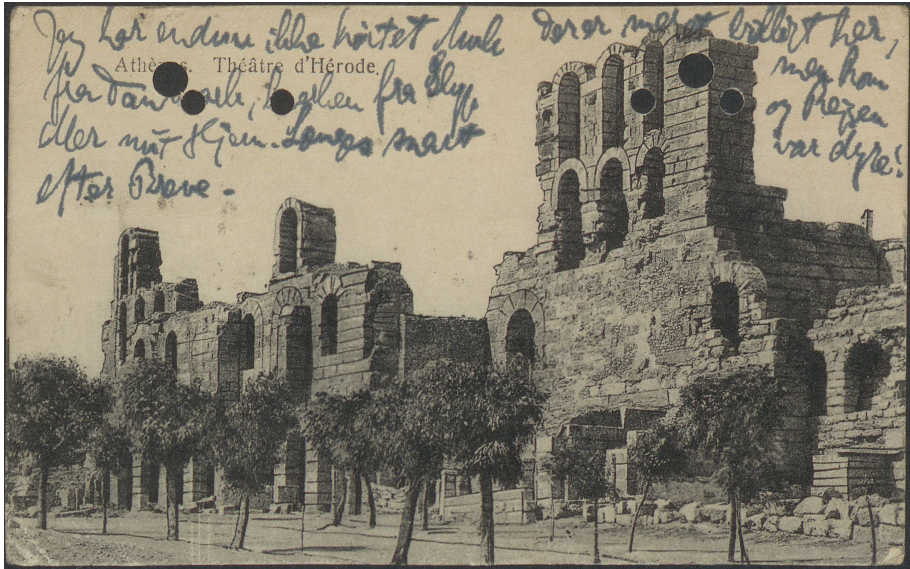 Jeg har endnu ikke hørtet
Athènes. Théâtre d'Hérode.
fra Danmark, hverken fra Elly,
eller mit Hjem. Længes snart
efter Breve.
Det er meget billigt her,
men kom
og Rejsen
var dyre!